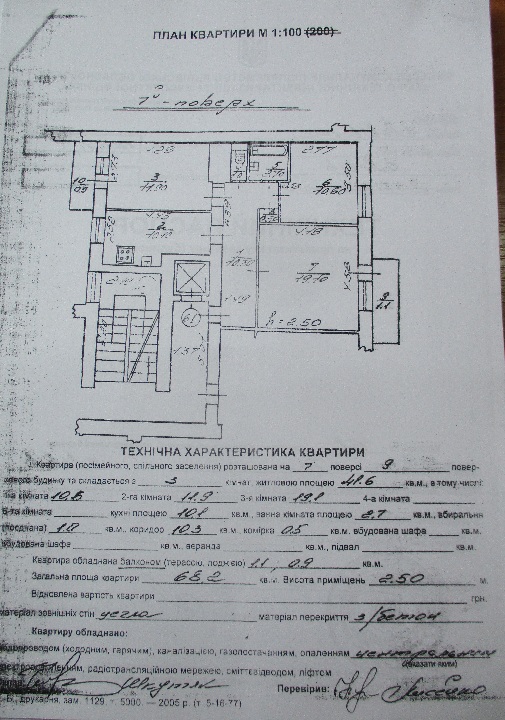 ПЛАН КВАРТИРИ М 1:100 (200)
7й - поверх
3
11.90
2.77
5
6
10.60
10
0.9
4.18
7
19.10
9
1.1
h = 2.50
ТЕХНІЧНА ХАРАКТЕРИСТИКА КВАРТИРИ
Квартира (посімейного, спільного заселення) розташована на 7 поверсі 9 повер-
будинку та складається з 3 кімнат житловою площею 41.6 кв.м., в тому числі:
кімната 10.6 2-га кімната 11.9 3-я кімната 19.1 4-а кімната
5-та кімната кухні площею 10.1 кв.м., ванна кімната площею 2.7 кв.м., вбиральня
(поєднана) 1.0 кв.м., коридор 10.3 кв.м., комірка 0.5 кв.м. вбудована шафа кв.м.
вбудована шафа кв.м. веранда кв.м., підвал кв.м.
Квартира обладнана балконом (терасою, лоджією) 1.1, 0.9 кв.м.
Загальна площа квартири 68.2 кв.м. Висота приміщень 2.50 м.
Відновлена вартість квартири грн.
матеріал зовнішніх стін цегла матеріал перекриття з/бетон
Квартиру обладнано:
водопроводом (холодним, гарячим), каналізацією, газопостачанням, опаленням центральним
(вказати яким)
радіотрансляційною мережею, сміттєвідводом, ліфтом
Перевірив:
друкарня, зам. 1129, т. 5000. — 2005 р. (т. 5-16-77)